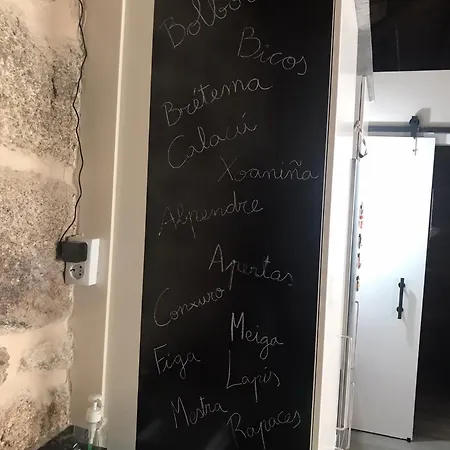 Bolbo
Bicos
Brétema
Calacú
Xoaniña
Alpendre
Apertas
Conxuro
Meiga
Figa
Lapis
Mestra
Rapaces